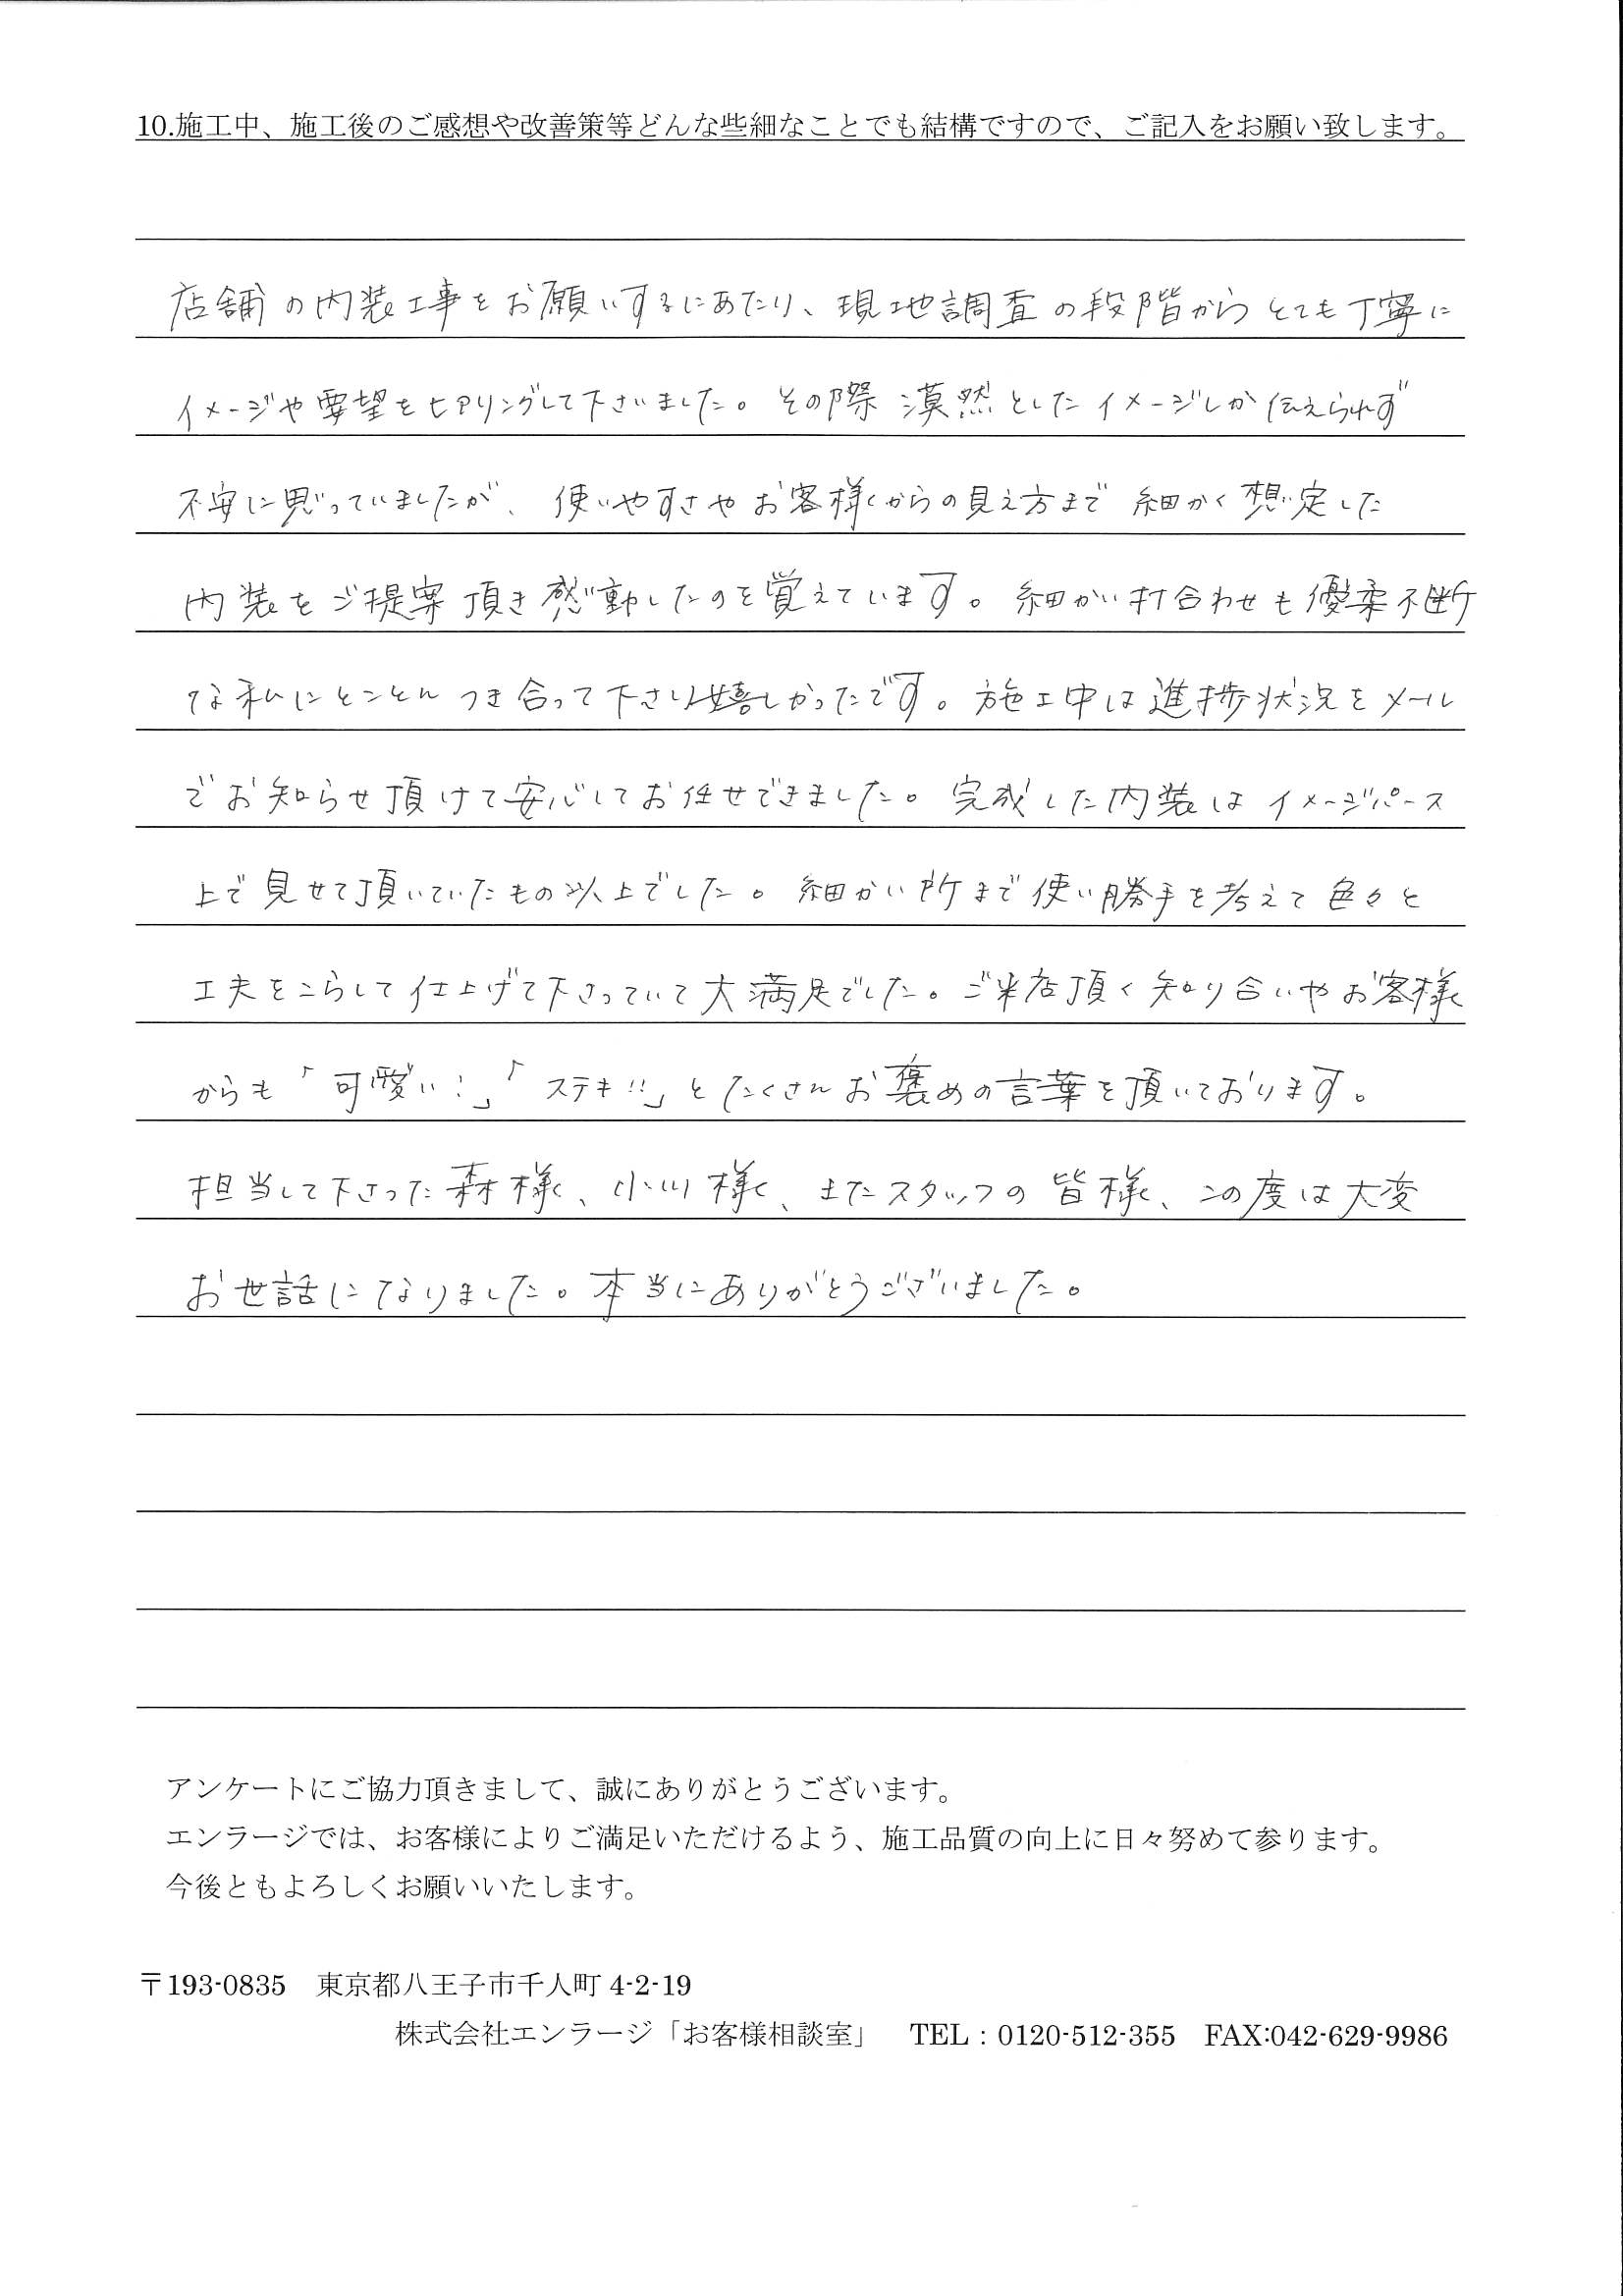 10.施工中、施工後のご感想や改善策等どんな些細なことでも結構ですので、ご記入をお願い致します。
店舗の内装工事をお願いするにあたり、現地調査の段階からとても丁寧に
イメージや要望をヒアリングして下さいました。その際漠然としたイメージしか伝えられず
不安に思っていましたが、使いやすさやお客様からの見え方まで細かく想定した
内装をご提案頂き感動したのを覚えています。細かい打合わせも優柔不断
な私にとことんつき合って下さり嬉しかったです。施工中は進捗状況をメール
でお知らせ頂けて安心してお任せできました。完成した内装はイメージパース
上で見せて頂いていたもの以上でした。細かい所まで使い勝手を考えて色々と
工夫をこらして仕上げて下さっていて大満足でした。ご来店頂く知り合いやお客様
からも「可愛い!」「ステキ!!」とたくさんお褒めの言葉を頂いております。
担当して下さった森様、小川様、またスタッフの皆様、この度は大変
お世話になりました。本当にありがとうございました。
アンケートにご協力頂きまして、誠にありがとうございます。
エンラージでは、お客様によりご満足いただけるよう、施工品質の向上に日々努めて参ります。
今後ともよろしくお願いいたします。
〒193-0835 東京都八王子市千人町 4-2-19
株式会社エンラージ「お客様相談室」 TEL：0120-512-355 FAX:042-629-9986